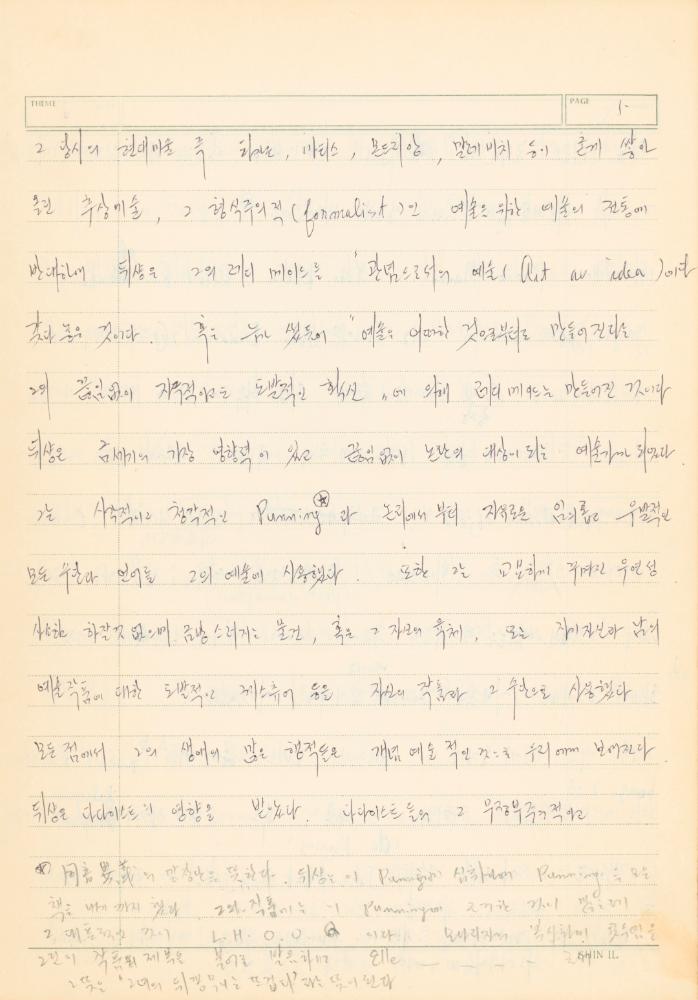 THEME PAGE 1-
그 당시의 현대미술 즉 , 마티스, 몬드리앙, 말레비치 등이 쌓아
올린 추상미술, 그 형식주의적(formalist)인 예술을 위한 예술의 전통에
반대하여 뒤샹은 그의 레디 메이드를 "관념으로서의 예술(Art as idea)이란
것이다. 혹은 누가 썼듯이 "예술은 어떠한 것으로부터도 만들어진다는
그의 끊임없이 지속적이고도 도발적인 확신"에 의해 레디메이드는 만들어진 것이다
뒤샹은 금세기의 가장 영향력이 있고 끊임없이 논란의 대상이 되는 예술가가 되었다.
그는 시각적이고 청각적인 Punning과 논리에서부터 자유로운 임의롭고 우발적인
모든 수단과 언어를 그의 예술에 사용했다. 또한 그는 교묘하게 꾸며진 우연성
하잘것 없으며 금방 스러지는 물건, 혹은 그 자신의 육체, 또는 자기자신과 남의
예술작품에 대한 도발적인 제스츄어 등을 자신의 작품과 그 수단으로 사용했다
모든 점에서 그의 생애의 많은 행적들은 개념예술적인 것으로 우리에게 보여진다
뒤샹은 다다이스트의 영향을 받았다. 다다이스트들의 그 무정부주의적이고
同音異義의 말장난을 뜻한다. 뒤샹은 이 Punning에 심취하여 Punning을 모은
책을 내기까지 했다. 그의 작품에는 이 Punning에 근거한 것이 많은데
그 대표적인 것이 L.H.O.O.Q 이다. 모나리자의
그린 이 작품의 제목은 불어로 발음하면 Elle
그 뜻은 "그녀의 뒤 는 뜨겁다"라는 뜻이 된다
SHIN IL